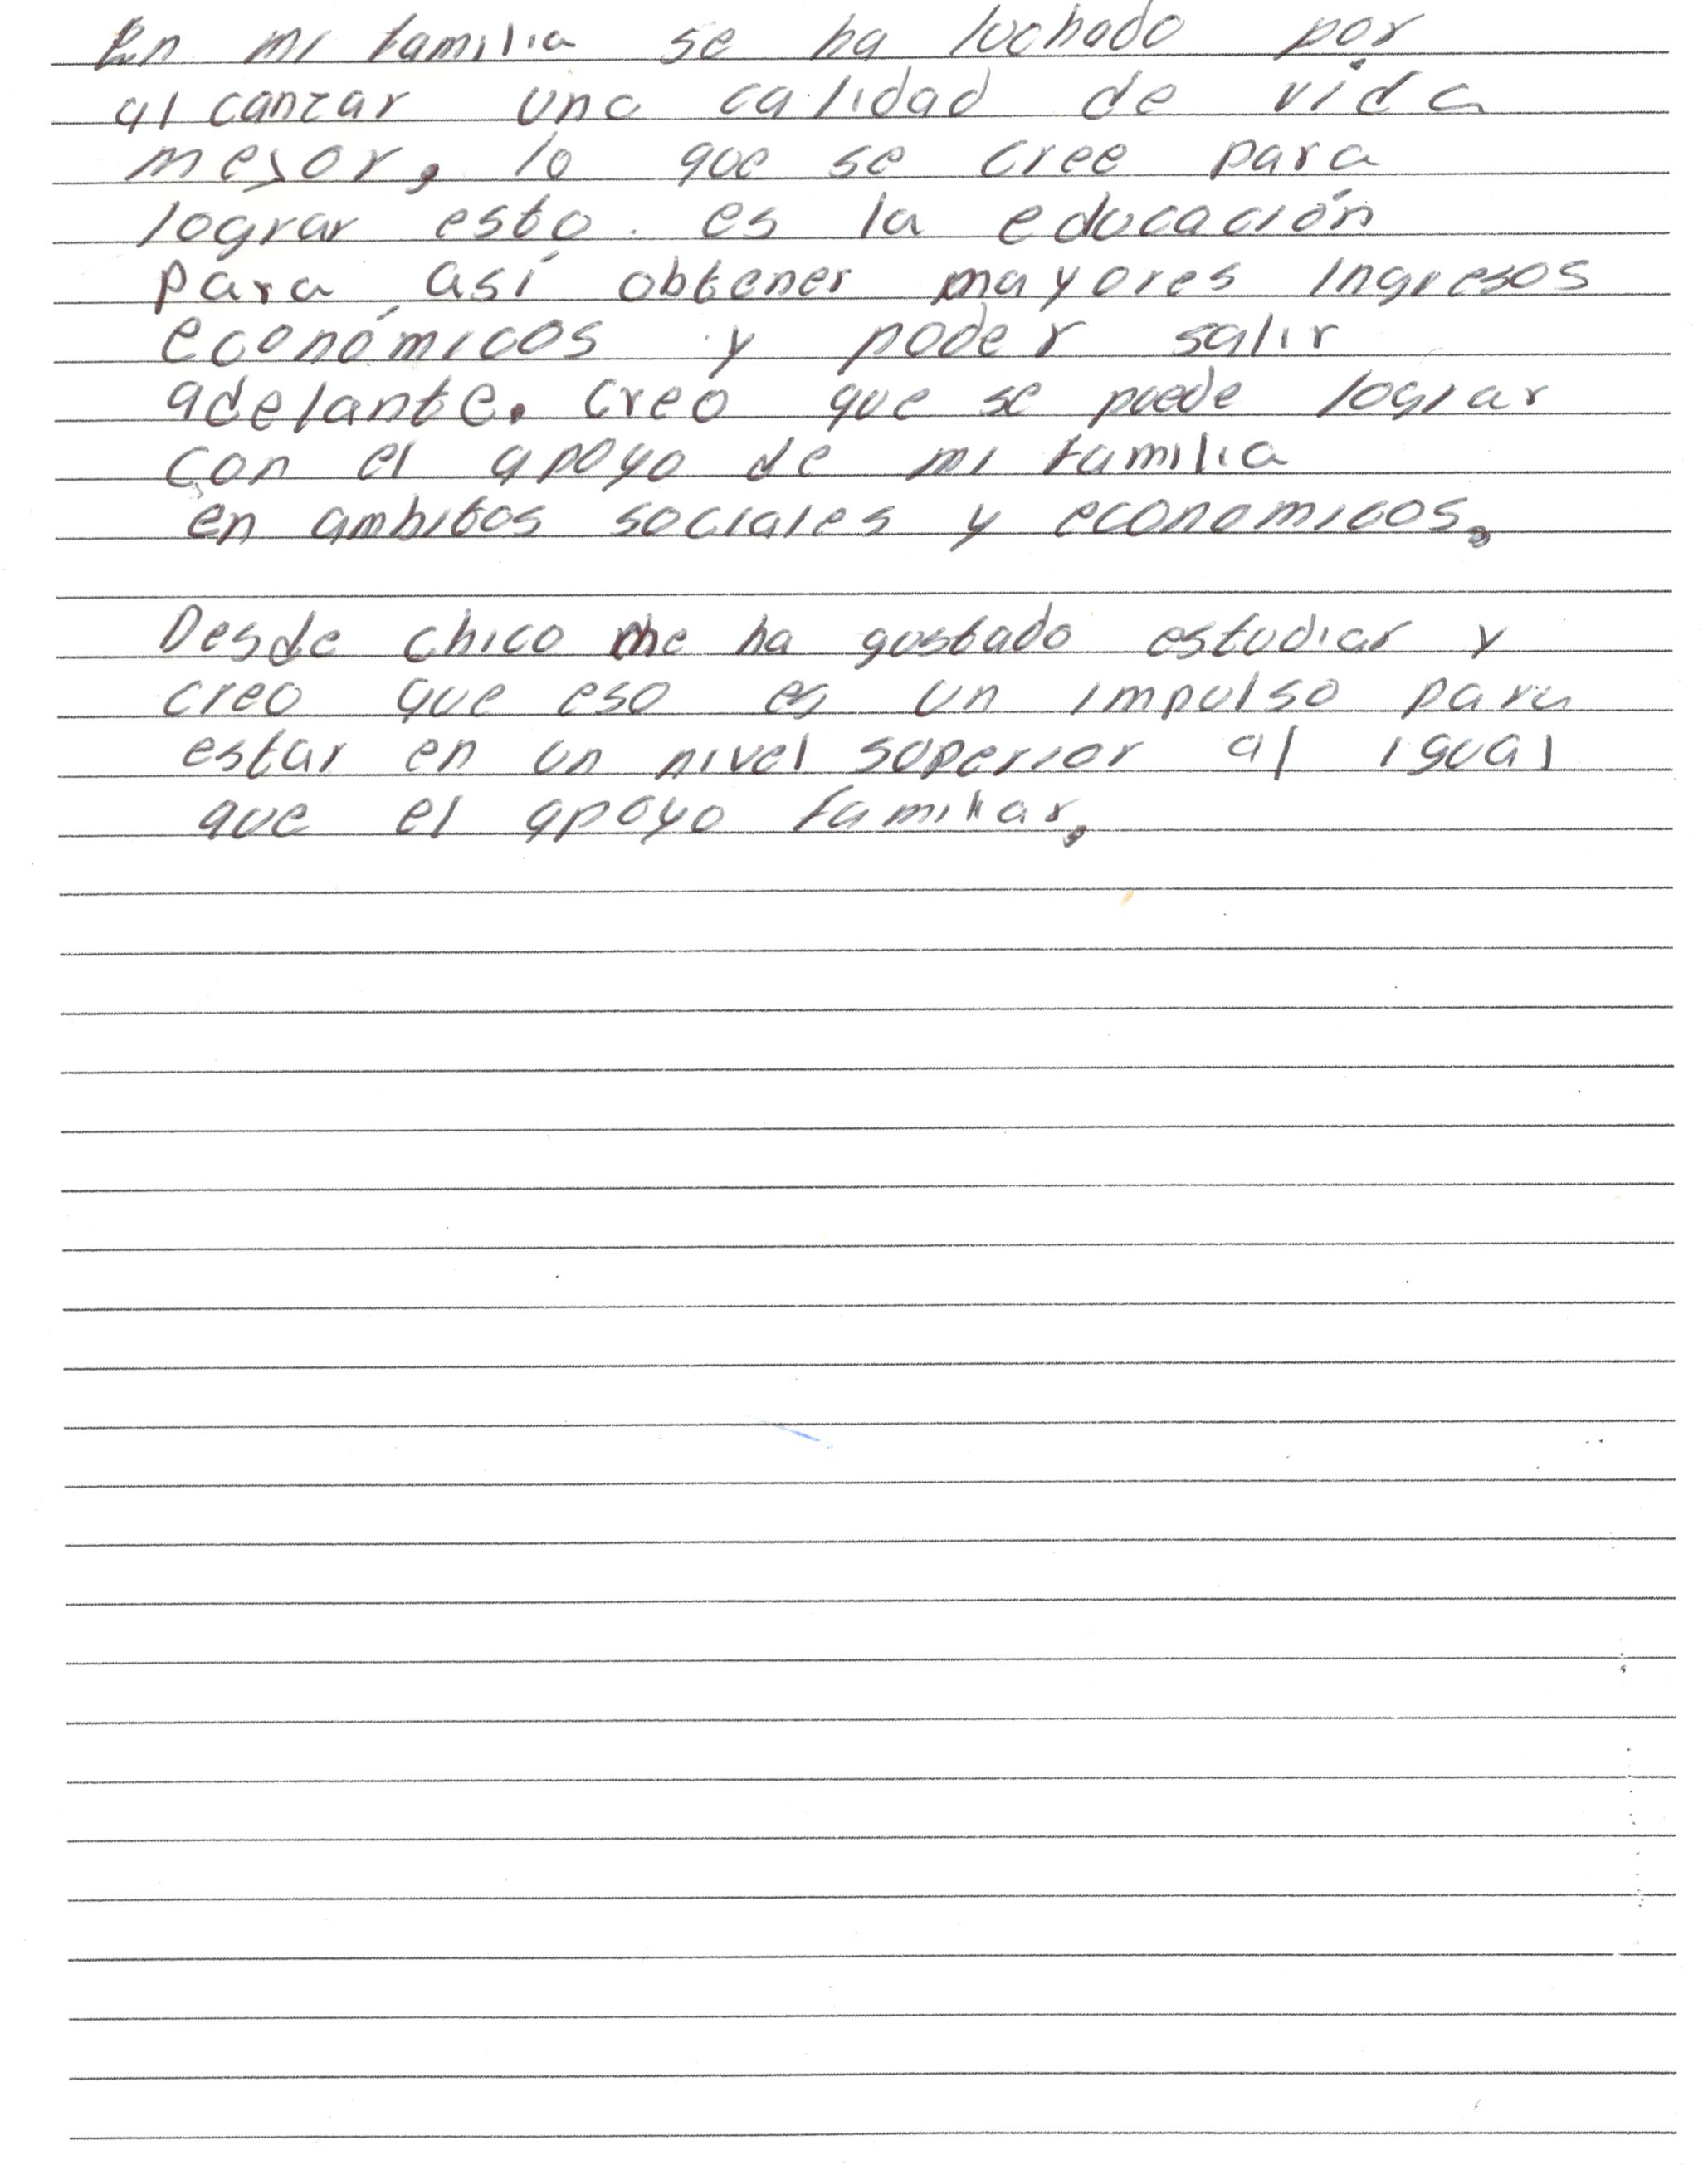 En mi familia se ha luchado por
alcanzar una calidad de vida
mejor, lo que se cree para
lograr esto es la educación
para así obtener mayores ingresos
económicos y poder salir
adelante. Creo que se puede lograr
con el apoyo de mi familia
en ambitos sociales y economicos.
Desde chico me ha gustado estudiar y
creo que eso es un impulso para
estar en un nivel superior al igual
que el apoyo familiar.